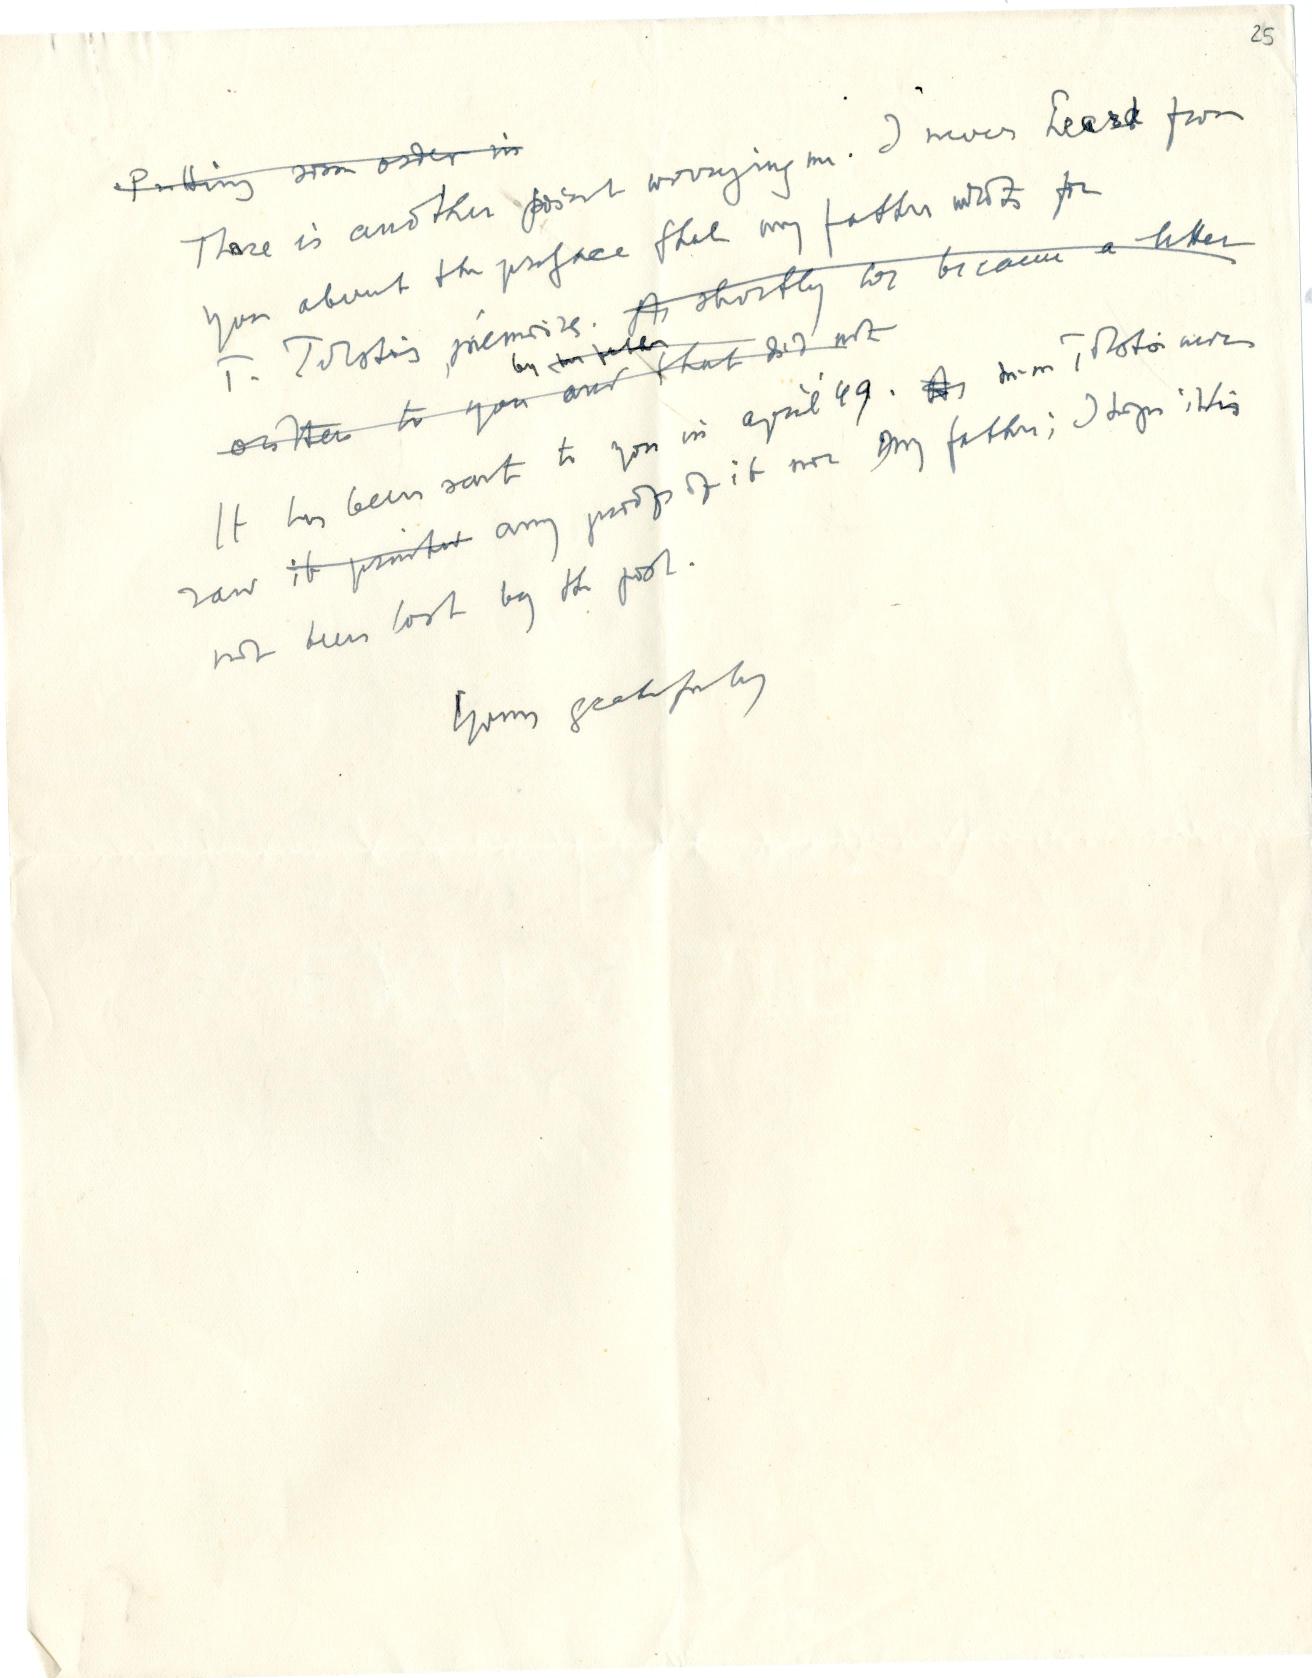 25
Putting some order in
There is another point worrying me. I never heard from
you about the preface that my father wrote for
T. Tolstoi's mémoires. As shortly we became a letter
written to you and that did not
by my father
It has been sent to you in april '49. As m-m Tolstoi never
saw it printed any proofs of it nor my father; I hope it is
not been lost by the post.
Yours gratefully